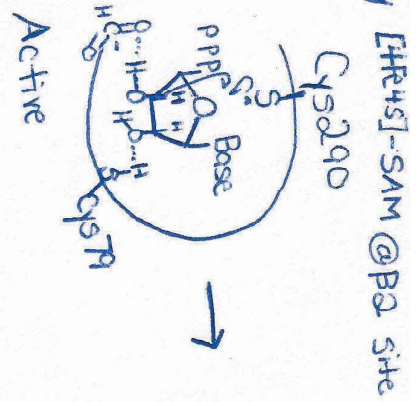 [4Fe4S]-SAM @B2 Site
Cys290
S
PPP
O
Base
H H
O O
H H
O
H
O
S
H
Cys79
Active